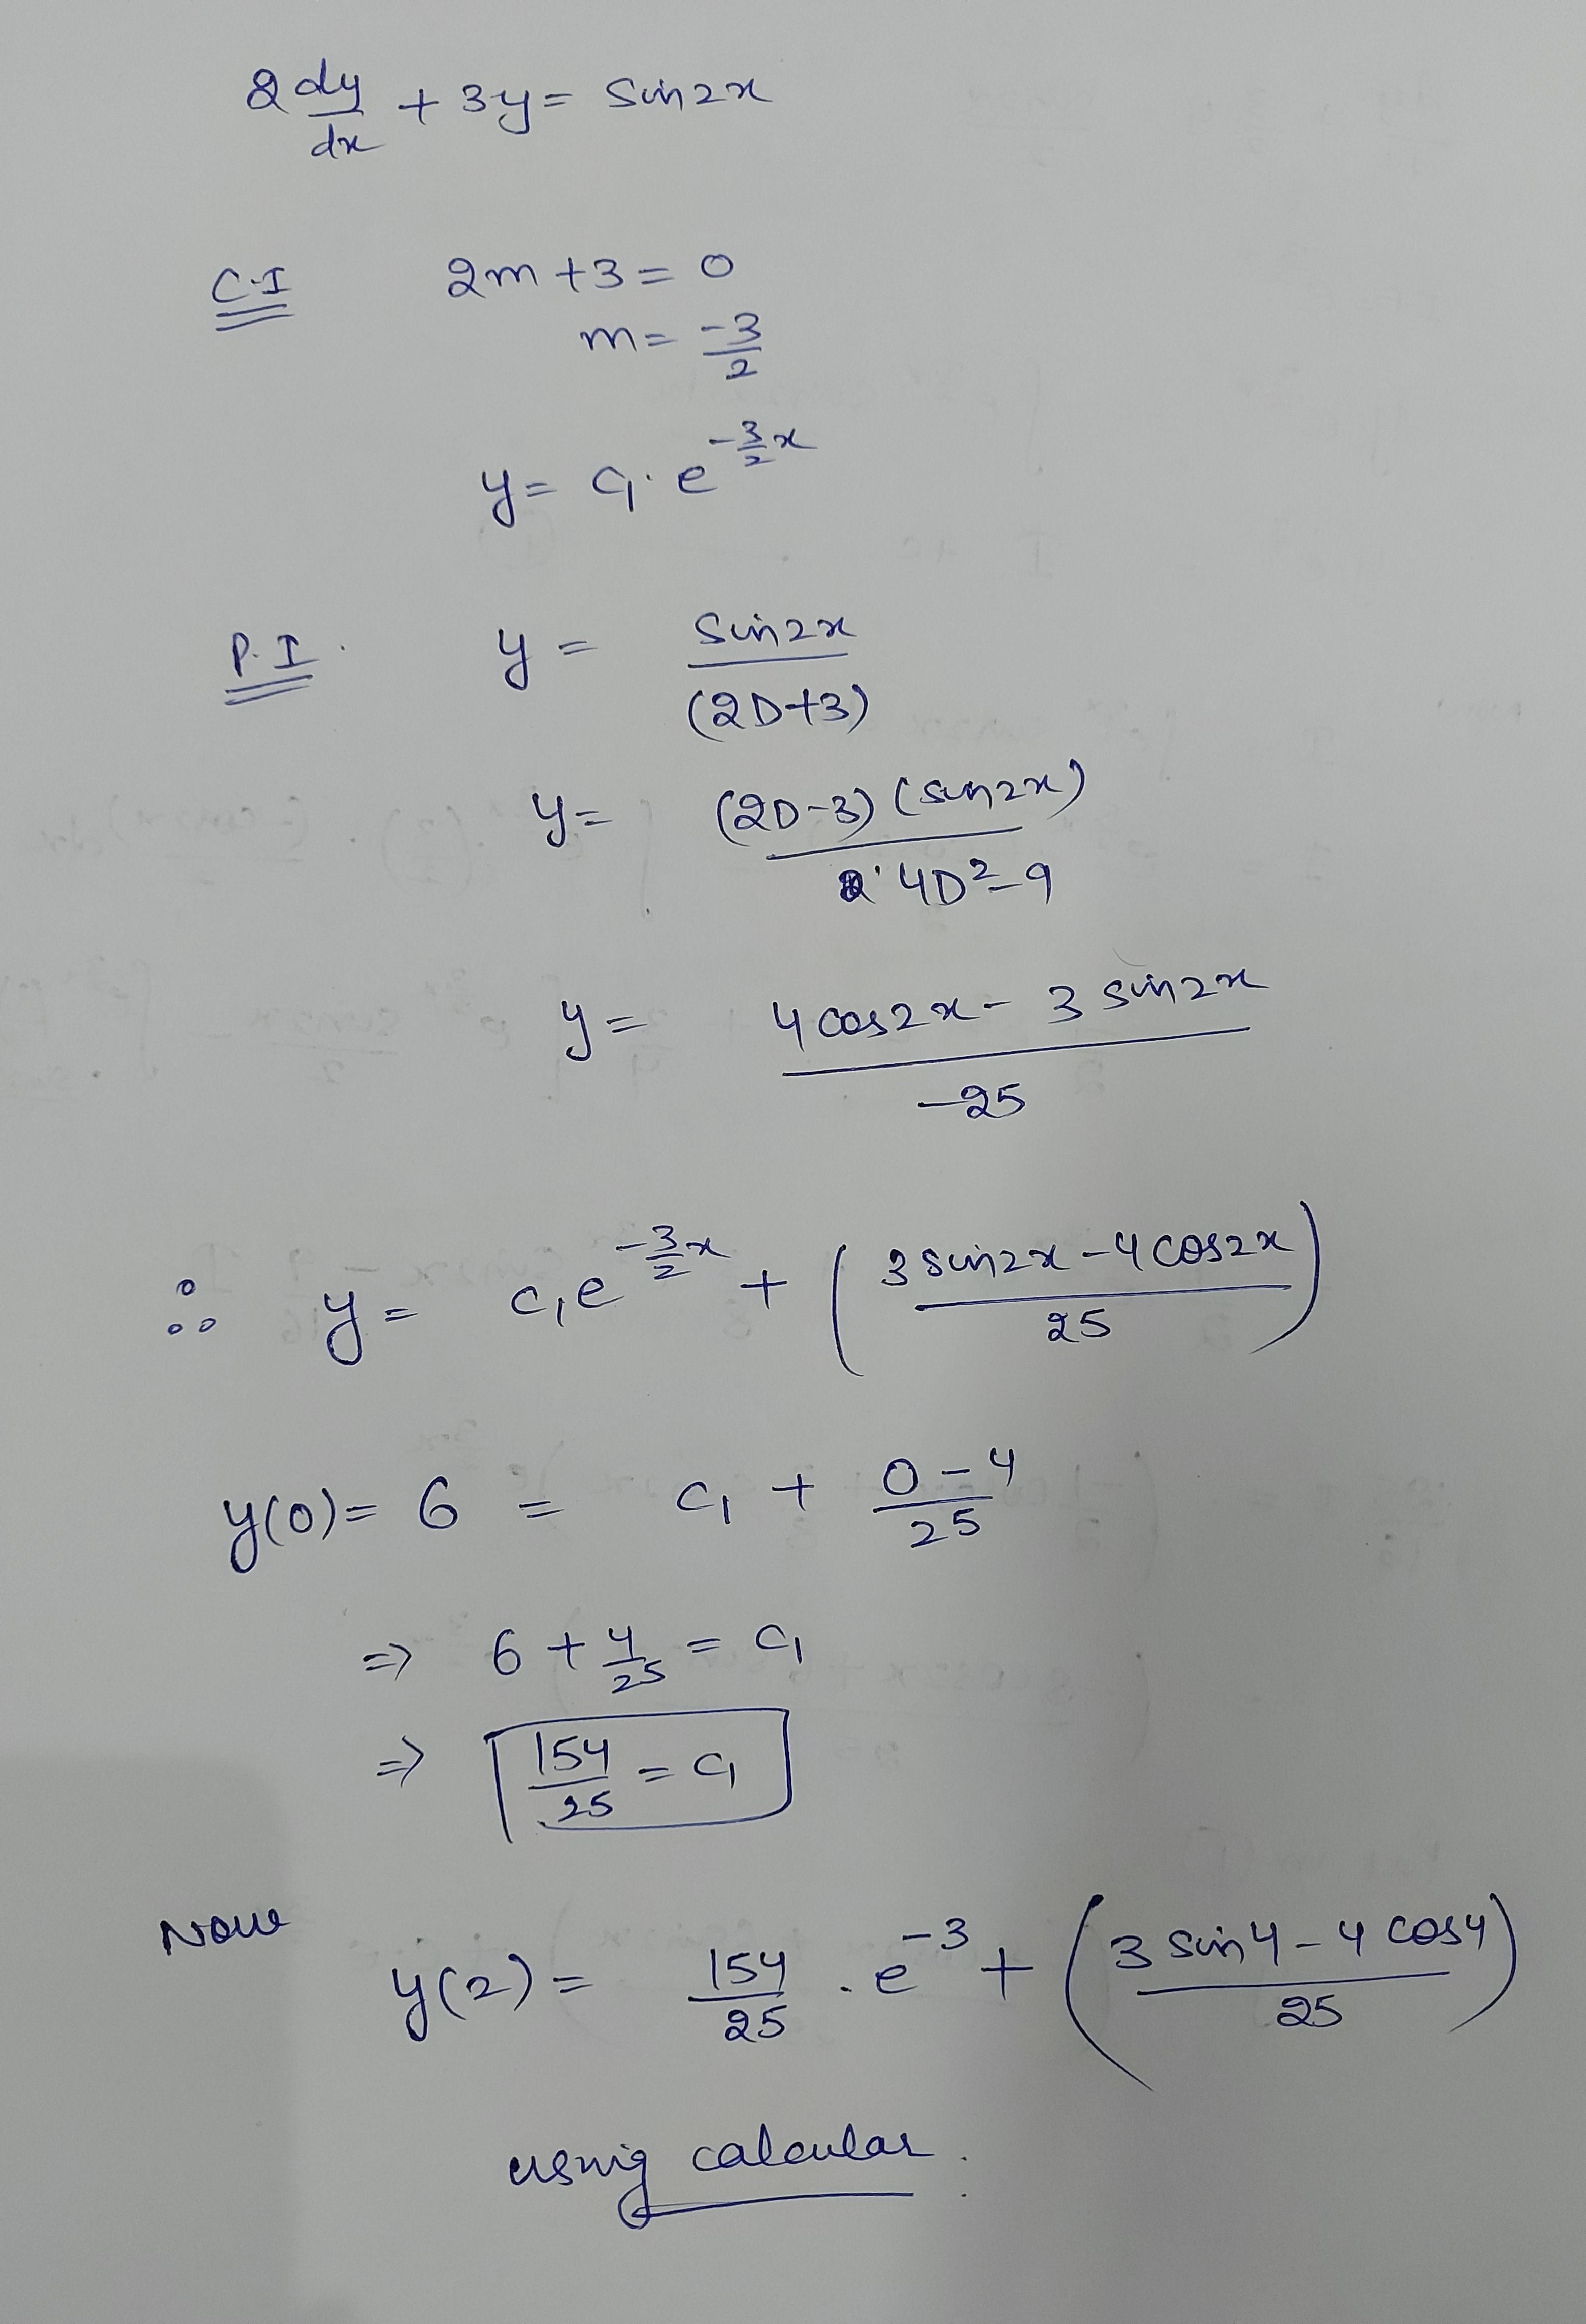 2 dy/dx + 3y = Sin2x
C.I 2m + 3 = 0
m = -3/2
y = C₁. e^(-3/2 x)
P.I. y = Sin2x / (2D+3)
y = (2D-3)(sin2x) / 4D²-9
y = 4cos2x - 3sin2x / -25
∴ y = C₁e^(-3/2 x) + (3sin2x - 4cos2x / 25)
y(0) = 6 = C₁ + 0-4/25
⇒ 6 + 4/25 = C₁
⇒ 154/25 = C₁
Now
y(2) = 154/25 . e^-3 + (3 sin4 - 4 cos4 / 25)
using calcular.